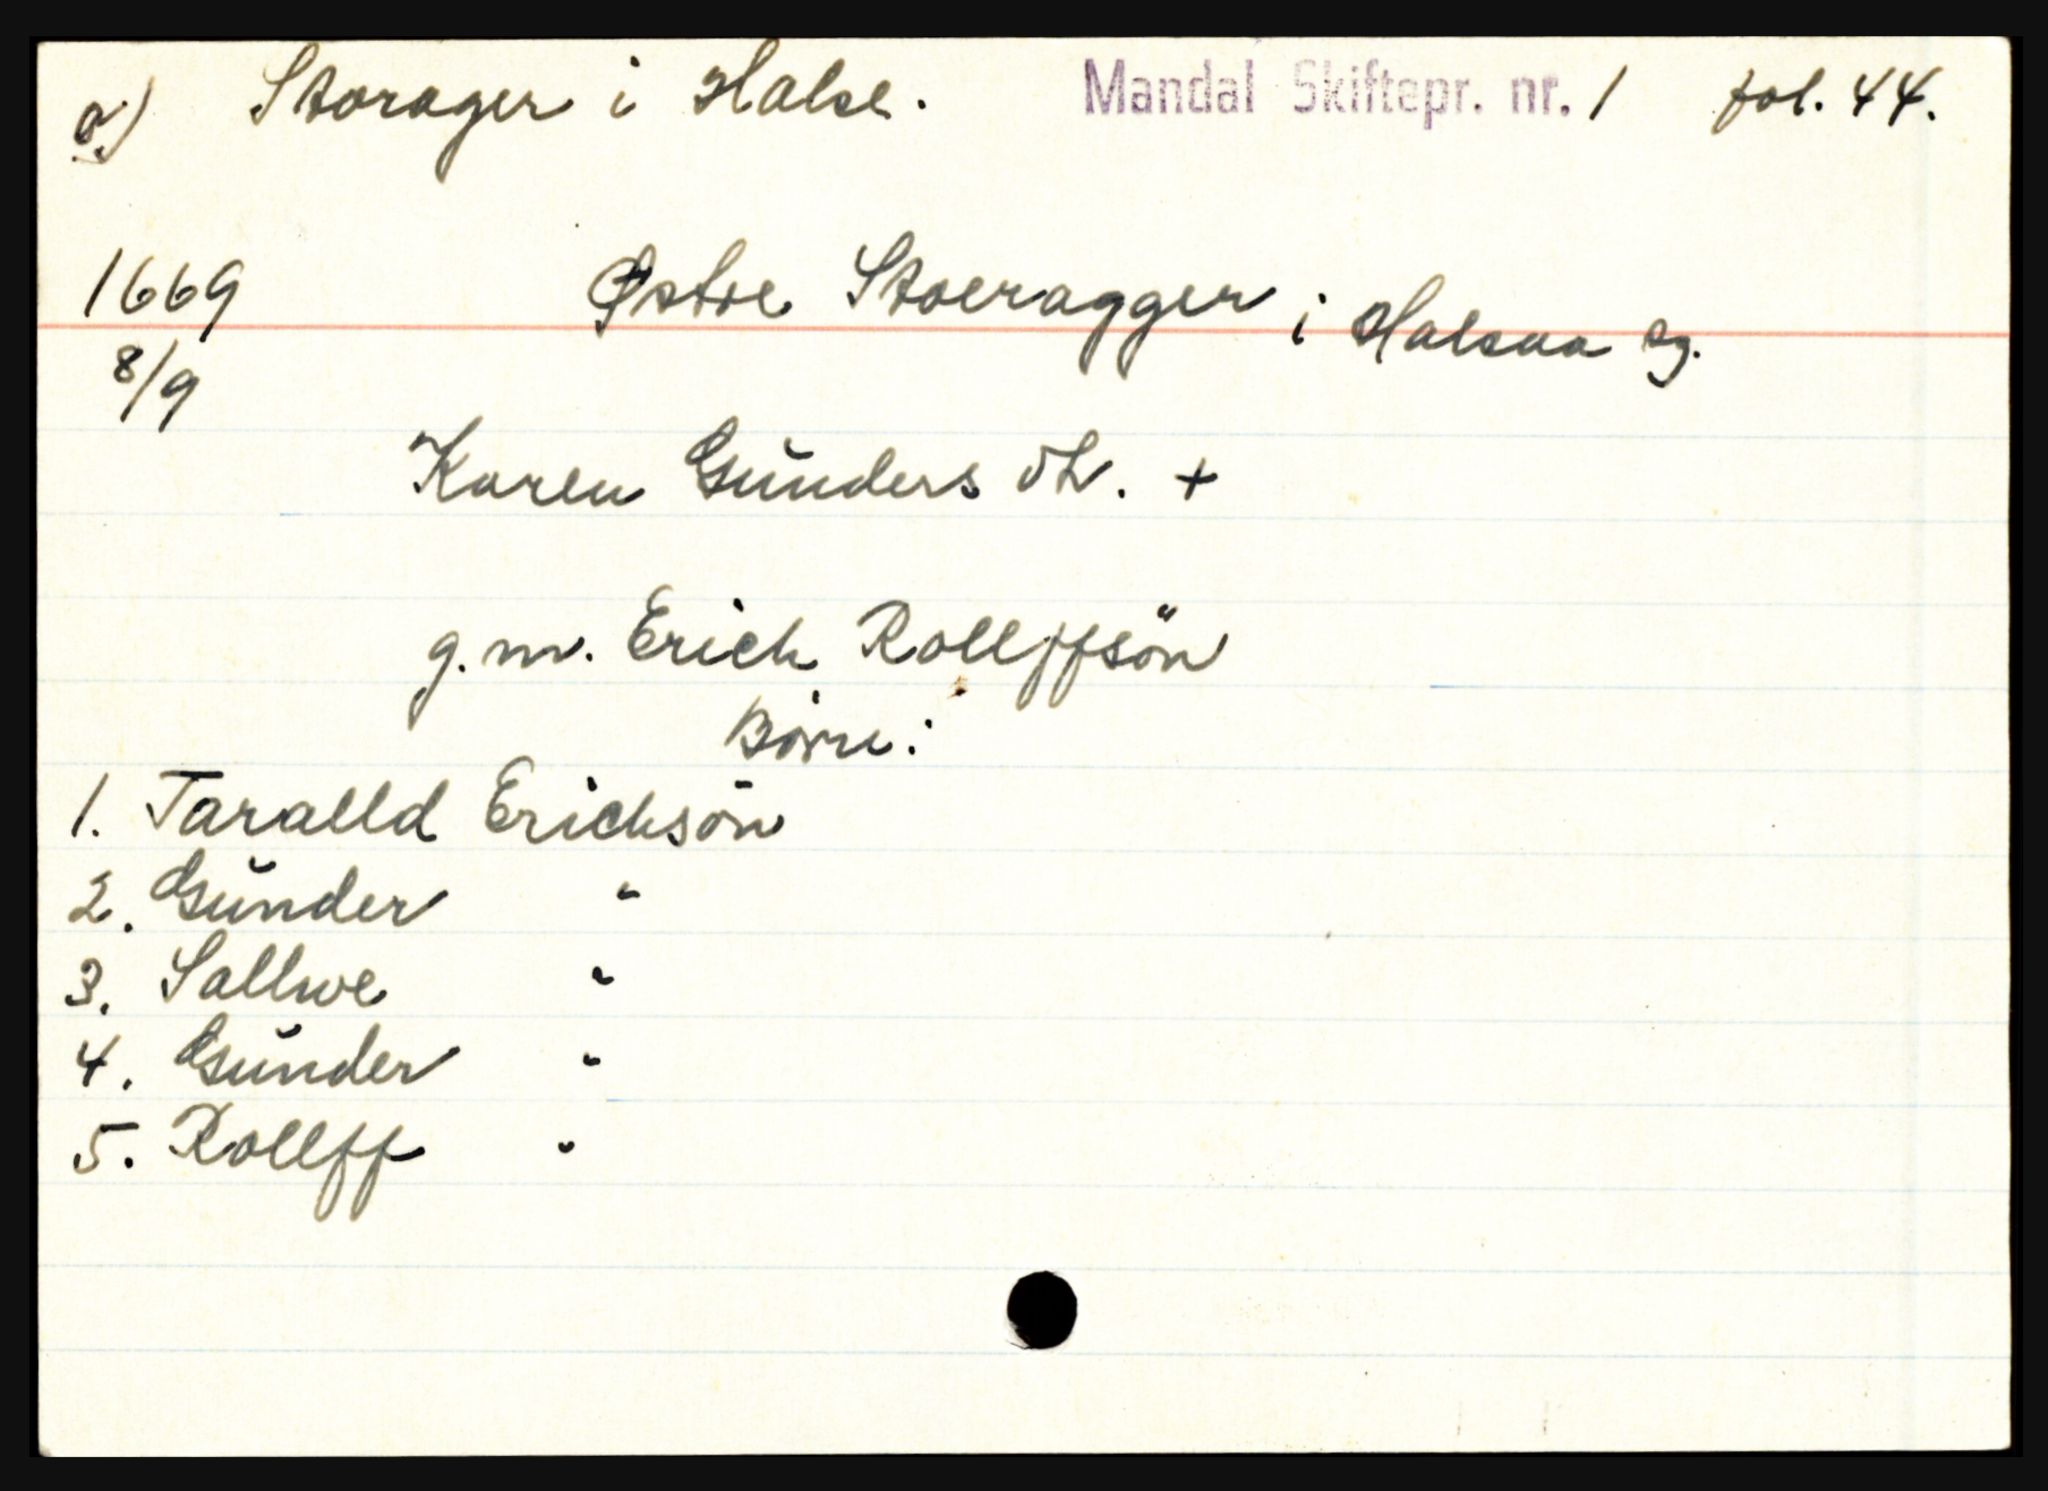 a) Storager i Halse. Mandal Skiftepr. nr. 1 fol. 44.
1669 Østre Stoeragger i Halsaa sg.
8/9
Karen Gŭnders dtr. +
g. m. Erich Rollffsön
Børn:
1. Taralld Erichsön
2. Gŭnder "
3. Sallwe "
4. Gŭnder "
5. Rollff "